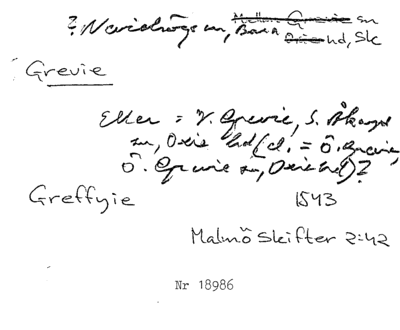 ? Navidhögs sn, Bara ~~Malmö Grevie~~ sn
~~Oxie~~ hd, Sk
Grevie
Eller = V. Grevie, S. Åkarps
sn, Oxie hd (el. = Ö. Grevie,
Ö. Grevie sn, Oxie hd)?
Greffyie 1543
Malmö Skifter 2:42
Nr 18986